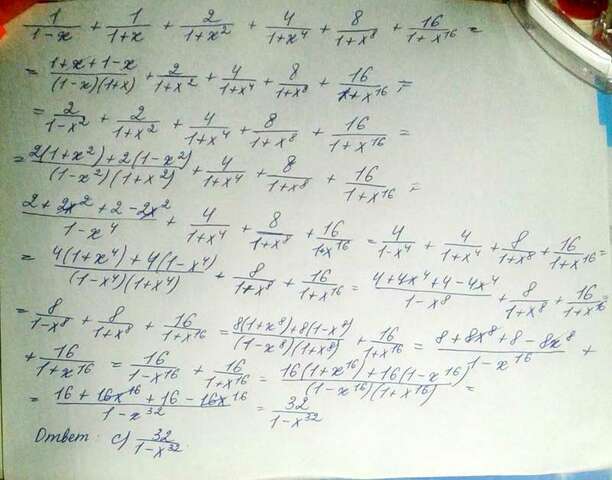 1/(1-x) + 1/(1+x) + 2/(1+x²) + 4/(1+x⁴) + 8/(1+x⁸) + 16/(1+x¹⁶) =
= (1+x+1-x)/((1-x)(1+x)) + 2/(1+x²) + 4/(1+x⁴) + 8/(1+x⁸) + 16/(1+x¹⁶) =
= 2/(1-x²) + 2/(1+x²) + 4/(1+x⁴) + 8/(1+x⁸) + 16/(1+x¹⁶) =
= (2(1+x²)+2(1-x²))/((1-x²)(1+x²)) + 4/(1+x⁴) + 8/(1+x⁸) + 16/(1+x¹⁶) =
(2+2x²+2-2x²)/(1-x⁴) + 4/(1+x⁴) + 8/(1+x⁸) + 16/(1+x¹⁶) = 4/(1-x⁴) + 4/(1+x⁴) + 8/(1+x⁸) + 16/(1+x¹⁶) =
= (4(1+x⁴)+4(1-x⁴))/((1-x⁴)(1+x⁴)) + 8/(1+x⁸) + 16/(1+x¹⁶) = (4+4x⁴+4-4x⁴)/(1-x⁸) + 8/(1+x⁸) + 16/(1+x¹⁶)
= 8/(1-x⁸) + 8/(1+x⁸) + 16/(1+x¹⁶) = (8(1+x⁸)+8(1-x⁸))/((1-x⁸)(1+x⁸)) + 16/(1+x¹⁶) = (8+8x⁸+8-8x⁸)/(1-x¹⁶) +
+ 16/(1+x¹⁶) = 16/(1-x¹⁶) + 16/(1+x¹⁶) = (16(1+x¹⁶)+16(1-x¹⁶))/((1-x¹⁶)(1+x¹⁶)) =
= (16+16x¹⁶+16-16x¹⁶)/(1-x³²) = 32/(1-x³²)
Ответ: с) 32/(1-x³²)